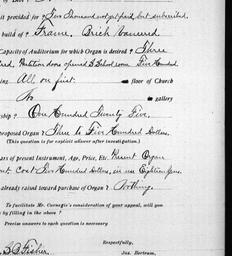 it provided for ? Five Thousand not yet paid, but subscribed.
build of ? Frame, Brick Veneered
Capacity of Auditorium for which Organ is desired ? Three
red. Partition doors opened S. School room Five Hundred
ing All on first. floor of Church
No gallery
ship ? One Hundred Twenty Five.
proposed Organ ? Three to Five Hundred Dollars.
(This question is for explicit answer after investigation.)
ars of present Instrument, Age, Price, Etc. Present Organ
Cost Five Hundred Dollars, in use Eighteen years.
already raised toward purchase of Organ ? Nothing.
To facilitate Mr. Carnegie's consideration of your appeal, will you
by filling in the above ?
Precise answers to each question is necessary
Respectfully,
Fisher Jas. Bertram,